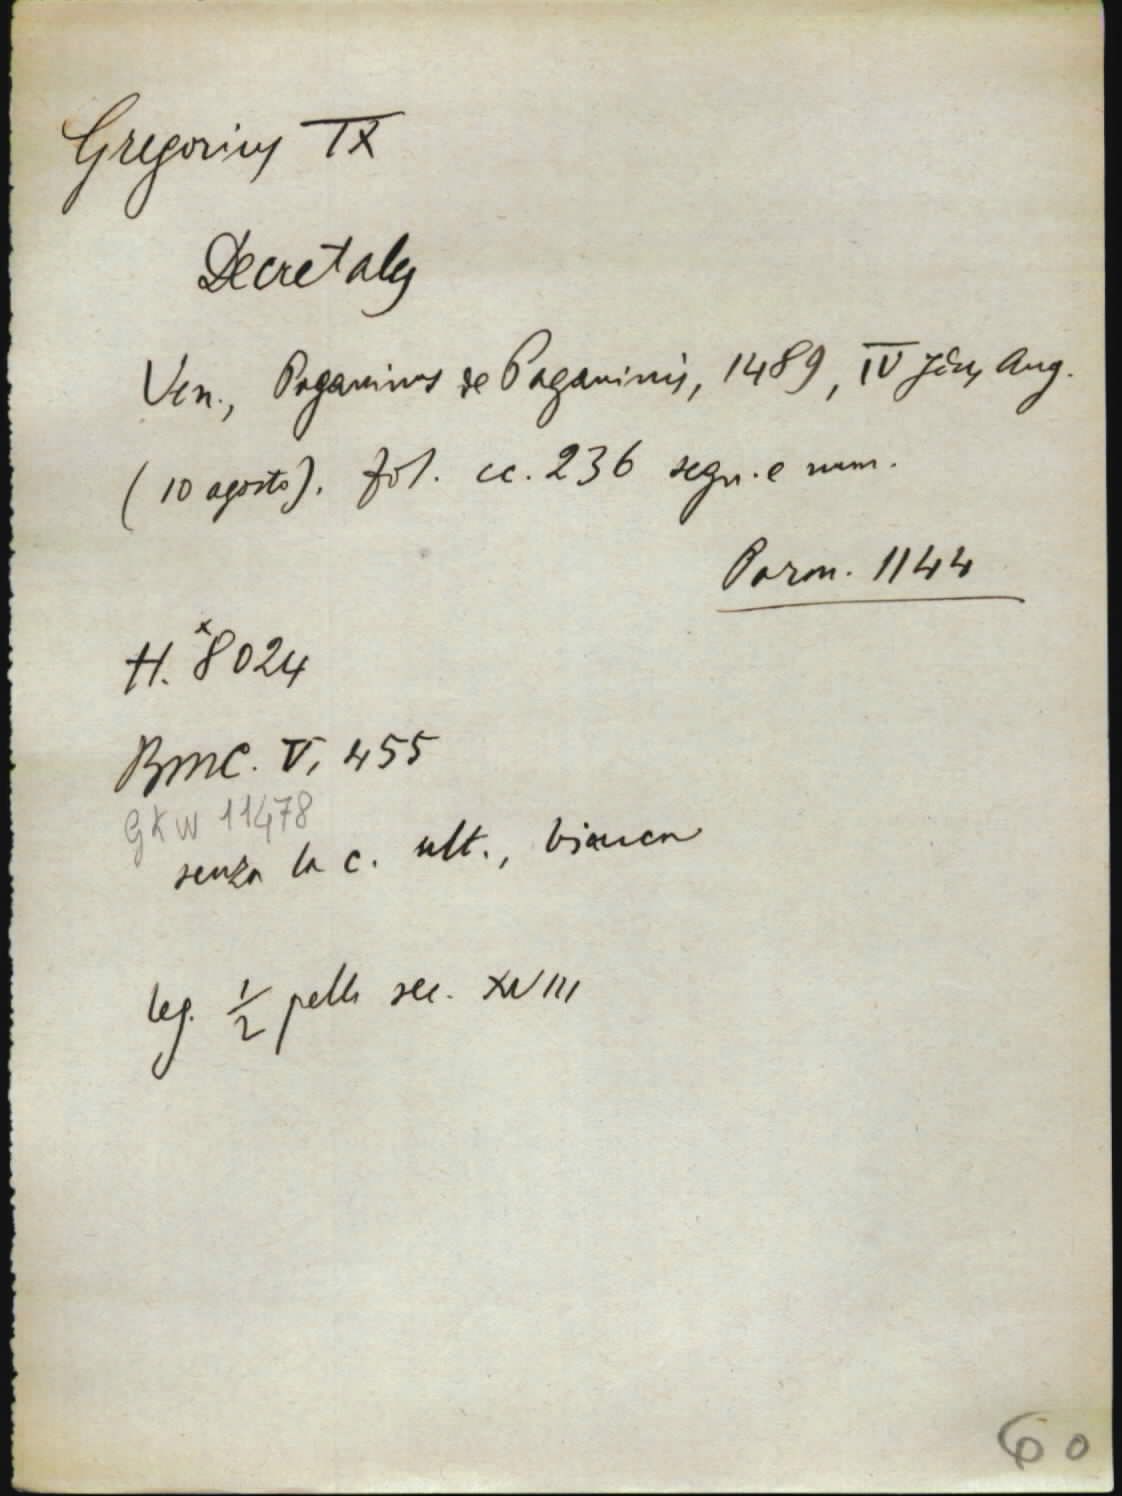 Gregorius IX
Decretales
Ven., Paganinus de Paganinis, 1489, IV Idus Aug.
(10 agosto). fol. cc. 236 segn. e num.
Parm. 1144
H. *8024
BMC. V, 455
GKW 11478
senza la c. ult., bianca
leg. 1/2 pelle sec. XVIII
60